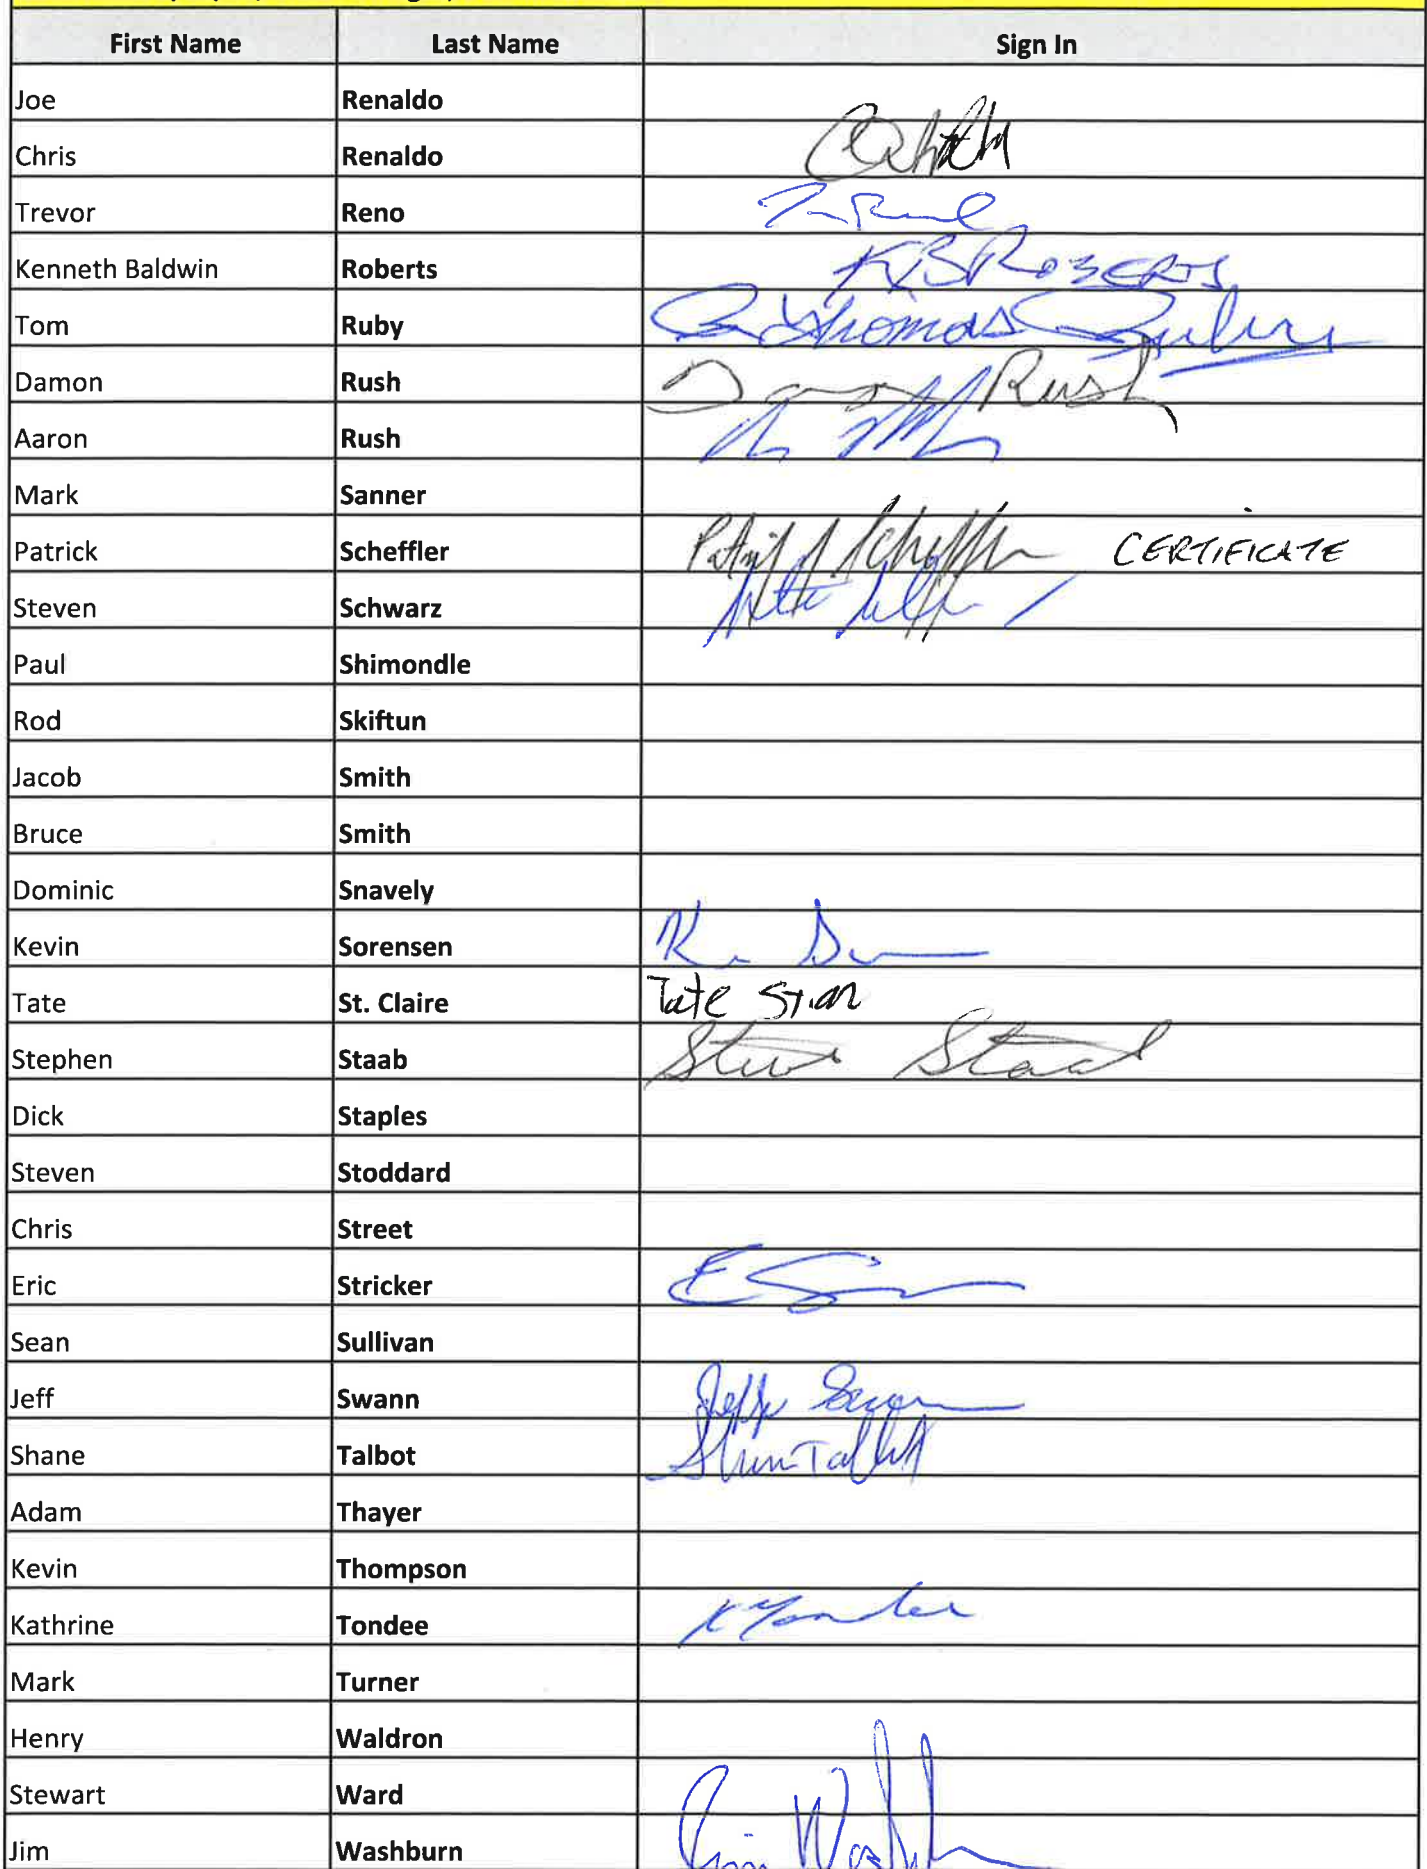 First Name Last Name Sign In
Joe Renaldo
Chris Renaldo
Trevor Reno
Kenneth Baldwin Roberts KB ROBERTS
Tom Ruby Thomas Ruby
Damon Rush Damon Rush
Aaron Rush
Mark Sanner
Patrick Scheffler Patrick J Scheffler CERTIFICATE
Steven Schwarz
Paul Shimondle
Rod Skiftun
Jacob Smith
Bruce Smith
Dominic Snavely
Kevin Sorensen
Tate St. Claire Tate
Stephen Staab Steve Staab
Dick Staples
Steven Stoddard
Chris Street
Eric Stricker
Sean Sullivan
Jeff Swann Jeff Swann
Shane Talbot Shane Talbot
Adam Thayer
Kevin Thompson
Kathrine Tondee
Mark Turner
Henry Waldron
Stewart Ward
Jim Washburn Jim Washburn